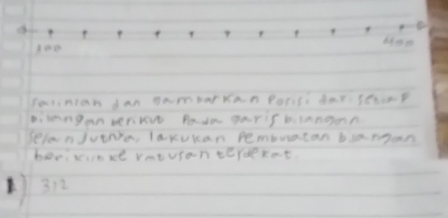 300 400
Salinlah dan gambarkan Posisi dari setiap
bilangan berikut Pada garis bilangan.
Selanjutnya, lakukan Pembulatan bilangan
berikut ke ratusan terdekat.
1) 312